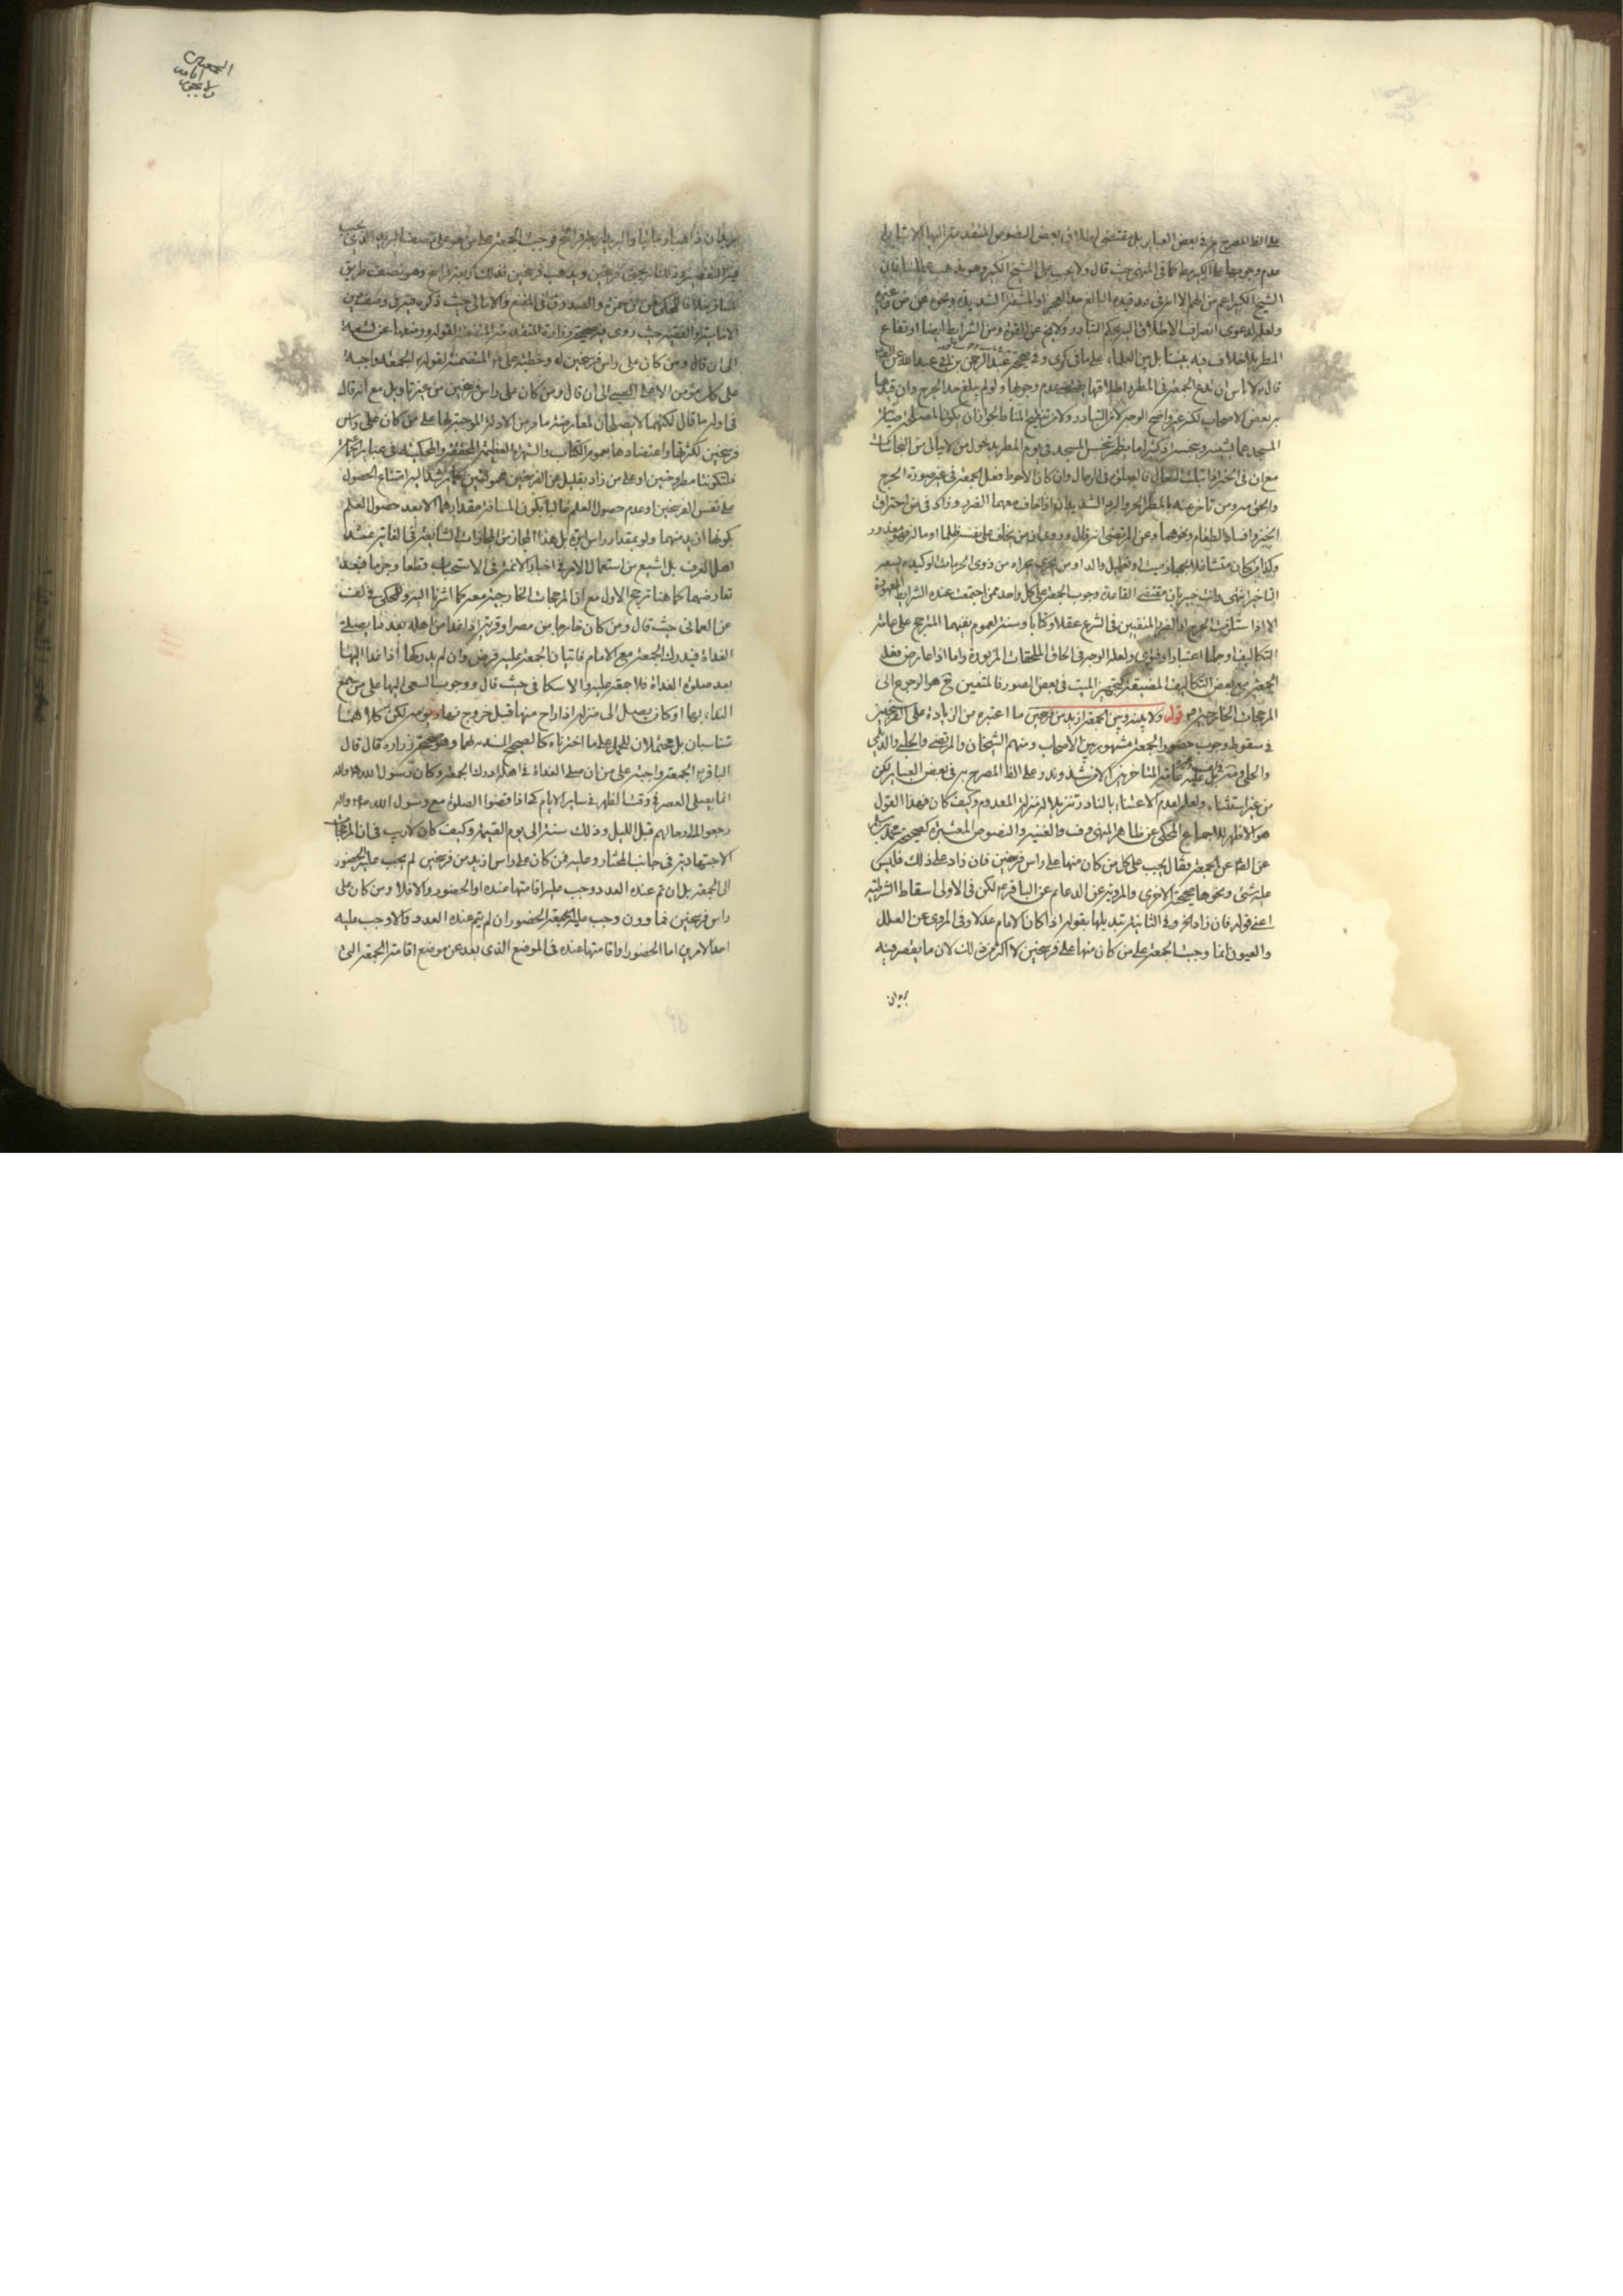 على الظ المصرح به في بعض العباير بل مقتضى اطلاق بعض النصوص المتقدمة اليها الاشارة
عدم وجوبها على الكبير مط كما في المنتهى حيث قال ولا يجب على الشيخ الكبير وهو مذهب علمائنا فان
الشيخ الكبير اعم من الهم الا انه في عدة قيده البالغ حد العجز او المشقة الشديدة ونحوه عن ض وغيره
ولعله لدعوى انصراف الاطلاق اليه بحكم التبادر ولا يخ عن القوة ومن الشرايط ايضا ارتفاع
المطر بلا خلاف فيه بيننا بل بين العلماء على ما في كرى وفي صحيحة عبد الرحمن بن ابي عبد الله عن الص
قال لا باس ان تدع الجمعة في المطر واطلاقها يقتضي عدم وجوبها ولو لم يبلغ حد الحرج وان قيدها
به بعض الاصحاب لكنه غير واضح الوجه لا من التبادر ولا من تنقيح المناط لجواز ان يكون المصلحة صيانة
المسجد عما يشينه وينجسه اذ كثيرا ما يظهر نجس المسجد في يوم المطر بدخول من لا يبالي من النجاسات
مع ان في الخبر اذا ابتلت النعال فالصلوة في الرحال وان كان الاحوط فعل الجمعة في غير صورة الحرج
والحق ومن تاخر عنه بالمطر الحر والبرد الشديدان اذا خاف معهما الضرر وزاد في ض احتراق
الخبز وافساد الطعام ونحوهما وعن المرتضى انه قال وروي ان من يخاف على نفسه ظلما او ماله فهو معذور
وكذا من كان متشاغلا بجهاز ميت او تعليل والد او من يجرى مجراه من ذوى الحرمات الوكيدة يسعه
التاخر انتهى وانت خبير بان مقتضى القاعدة وجوب الجمعة على كل واحد ممن اجتمعت عنده الشرايط المعهودة
الا اذا استلزمت الحرج او الضرر المنفيين في الشرع عقلا وكتابا وسنة لعموم نفيهما المترجح على عامة
التكاليف وجلها اعتبارا وفتوى ولعله الوجه في الحاق الملحقات المزبورة واما اذا عارض فعل
الجمعة مع بعض التكاليف المضيقة كتجهيز الميت في بعض الصور فالمتعين ح هو الرجوع الى
المرجحات الخارجية قوله ولا بينه وبين الجمعة ازيد من فرسخين ما اعتبره من الزيادة على الفرسخين
في سقوط وجوب حضور الجمعة مشهور بين الاصحاب ومنهم الشيخان والمرتضى والحلبي والديلمي
والحلي بل عليه عامة المتاخرين الا من شذ وندر على الظ المصرح به في بعض العباير لكن
من غير استثناء ولعله لعدم الاعتناء بالنادر تنزيلا له منزلة المعدوم وكيف كان فهذا القول
هو الاظهر للاجماع المحكى عن ظاهر المنتهى وف والغنية والنصوص المعتبرة كصحيحة محمد بن مسلم
عن الص عن الجمعة فقال يجب على كل من كان منها على راس فرسخين فان زاد على ذلك فليس
عليه شئ ونحوها صحيحته الاخرى والمروية عن الدعائم عن الباقر ع لكن في الاولى اسقاط الشرطية
اعني قوله فان زاد الخ وفي الثانية تبديلها بقوله اذا كان الامام عدلا وفي المروى عن العلل
والعيون انما وجبت الجمعة على من كان منها على فرسخين لا اكثر من ذلك لان ما يقصر فيه
بريدان
بريدان ذاهبا وجائيا والبريد اربعة فراسخ فوجبت الجمعة على من هو على نصف البريد الذي يجب
فيه التقصير وذلك انه يجئ فرسخين ويذهب فرسخين فذلك اربعة فراسخ وهو نصف طريق
المسافر خلافا للمحكى عن ابن حمزة والصدوق في المقنع والامالي حيث ذكره في وصف دين
الامامية والفقيه حيث روى فيه صحيحة زرارة المتقدمة المتضمنة لقوله ووضعها عن تسعة
الى ان قال ومن كان على راس فرسخين له وخطبة على ع المتضمنة لقوله الجمعة واجبة
على كل مؤمن الا على الصبي الى ان قال ومن كان على راس فرسخين من غير تاويل مع انه قال
في اوله ما قال لكنهما لا يصلحان لمعارضة ما مر من الادلة الموجبة لها على من كان على راس
فرسخين لكثرتها واعتضادها بعموم الكتاب والشهرة العظيمة المحققة والمحكية في عباير الجماعة
فلتكونا مطروحتين او على من زاد بقليل عن الفرسخين محمولتين كما يرشد اليه امتناع الحصول
على نفس الفرسخين او عدم حصول العلم غالبا بكون المسافة مقدارهما الا بعد حصول العلم
بكونها ازيد منهما ولو بمقدار راس ابرة بل هذا المجاز من المجازات الشايعة في الغاية عند
اهل العرف بل اشيع من استعمال الامر في اخبار الائمة في الاستحباب قطعا وجزما فبعد
تعارضهما كما هنا ترجح الاول مع ان المرجحات الخارجية معه كما اشرنا اليه وللمحكى في لف
عن العماني حيث قال ومن كان خارجا من مصر او قرية اذا غدا من اهله بعد ما يصلى
الغداة فيدرك الجمعة مع الامام فاتيان الجمعة عليه فرض وان لم يدركها اذا غدا اليها
بعد صلوة الغداة فلا جمعة عليه والاسكافي حيث قال ووجوب السعي اليها على من سمع
النداء بها او كان يصل الى منزله اذا راح منها قبل خروج نهار يومه لكن كلاهما
تناسبان بل محتملان للحمل على ما اخترناه كالصحيح السند لهما وهو صحيحة زرارة قال قال
الباقر ع الجمعة واجبة على من ان صلى الغداة في اهله ادرك الجمعة وكان رسول الله ص واله
انما يصلى العصر في وقت الظهر في ساير الايام كي اذا قضوا الصلوة مع رسول الله ص واله
رجعوا الى رحالهم قبل الليل وذلك سنة الى يوم القيمة وكيف كان لا ريب في ان المرجحات
الاجتهادية في جانب المختار وعليه فمن كان على راس ازيد من فرسخين لم يجب عليه الحضور
الى الجمعة بل ان تم عنده العدد وجب عليه اقامتها عنده او الحضور والا فلا ومن كان على
راس فرسخين فما دون وجب عليه للجمعة الحضور ان لم يتم عنده العدد والا وجب عليه
احد الامرين اما الحضور او اقامتها عنده في الموضع الذى بعد عن موضع اقامة الجمعة التي